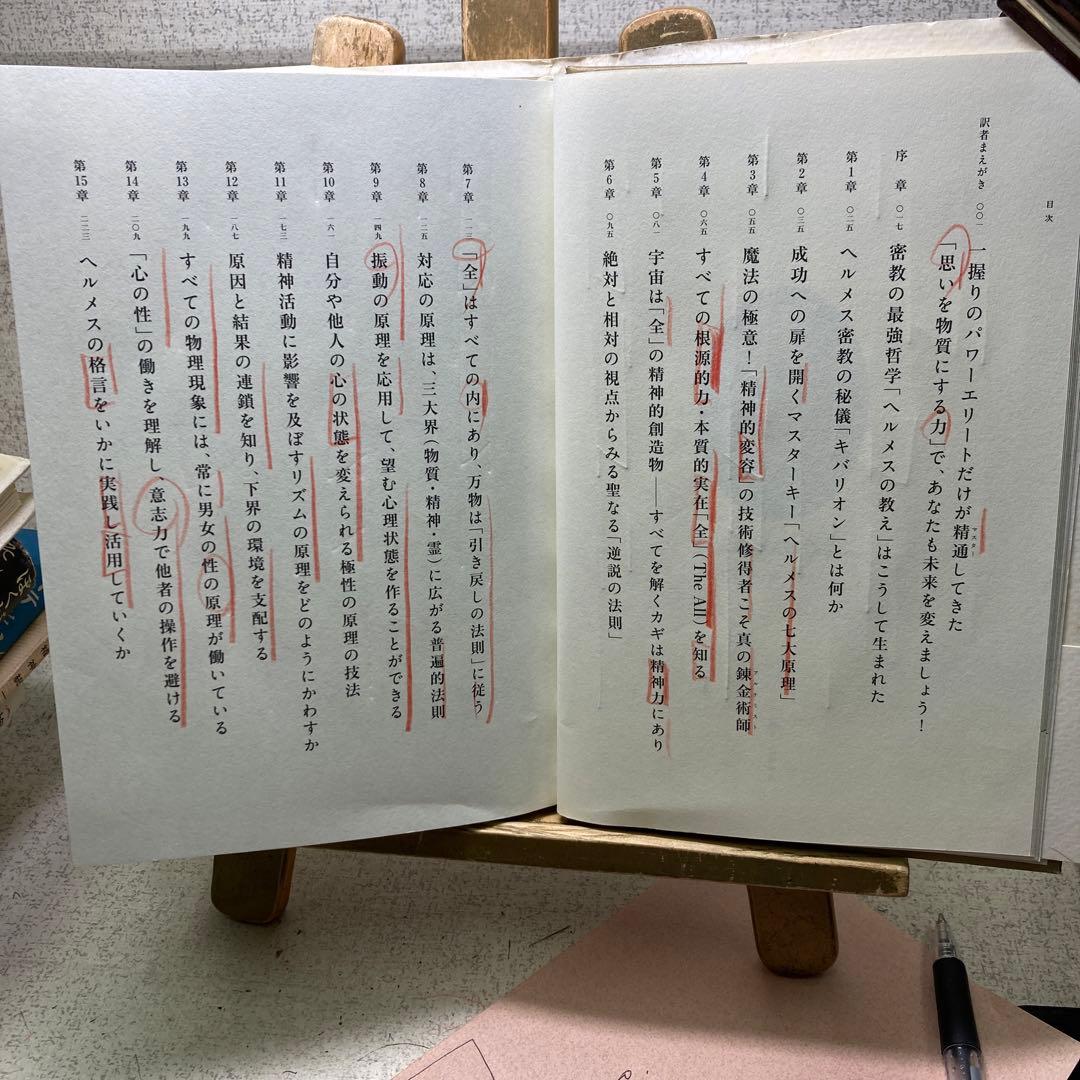 目次
訳者まえがき 〇〇一 一握りのパワーエリートだけが精通してきた
マスター
「思いを物質にする力」で、あなたも未来を変えましょう！
序章 〇一七 密教の最強哲学「ヘルメスの教え」はこうして生まれた
第1章 〇二五 ヘルメス密教の秘儀「キバリオン」とは何か
第2章 〇三五 成功への扉を開くマスターキー「ヘルメスの七大原理」
第3章 〇五五 魔法の極意！「精神的変容」の技術修得者こそ真の錬金術師
アルケミスト
第4章 〇六五 すべての根源的力・本質的実在「全」(The All)を知る
第5章 〇八一 宇宙は「全」の精神的創造物――すべてを解くカギは精神力にあり
第6章 〇九五 絶対と相対の視点からみる聖なる「逆説の法則」
第7章 一一三 「全」はすべての内にあり、万物は「引き戻しの法則」に従う
第8章 一二五 対応の原理は、三大界（物質・精神・霊）に広がる普遍的法則
第9章 一四九 振動の原理を応用して、望む心理状態を作ることができる
第10章 一六一 自分や他人の心の状態を変えられる極性の原理の技法
第11章 一七三 精神活動に影響を及ぼすリズムの原理をどのようにかわすか
第12章 一八七 原因と結果の連鎖を知り、下界の環境を支配する
第13章 一九九 すべての物理現象には、常に男女の性の原理が働いている
第14章 二〇九 「心の性」の働きを理解し、意志力で他者の操作を避ける
第15章 二二三 ヘルメスの格言をいかに実践し活用していくか